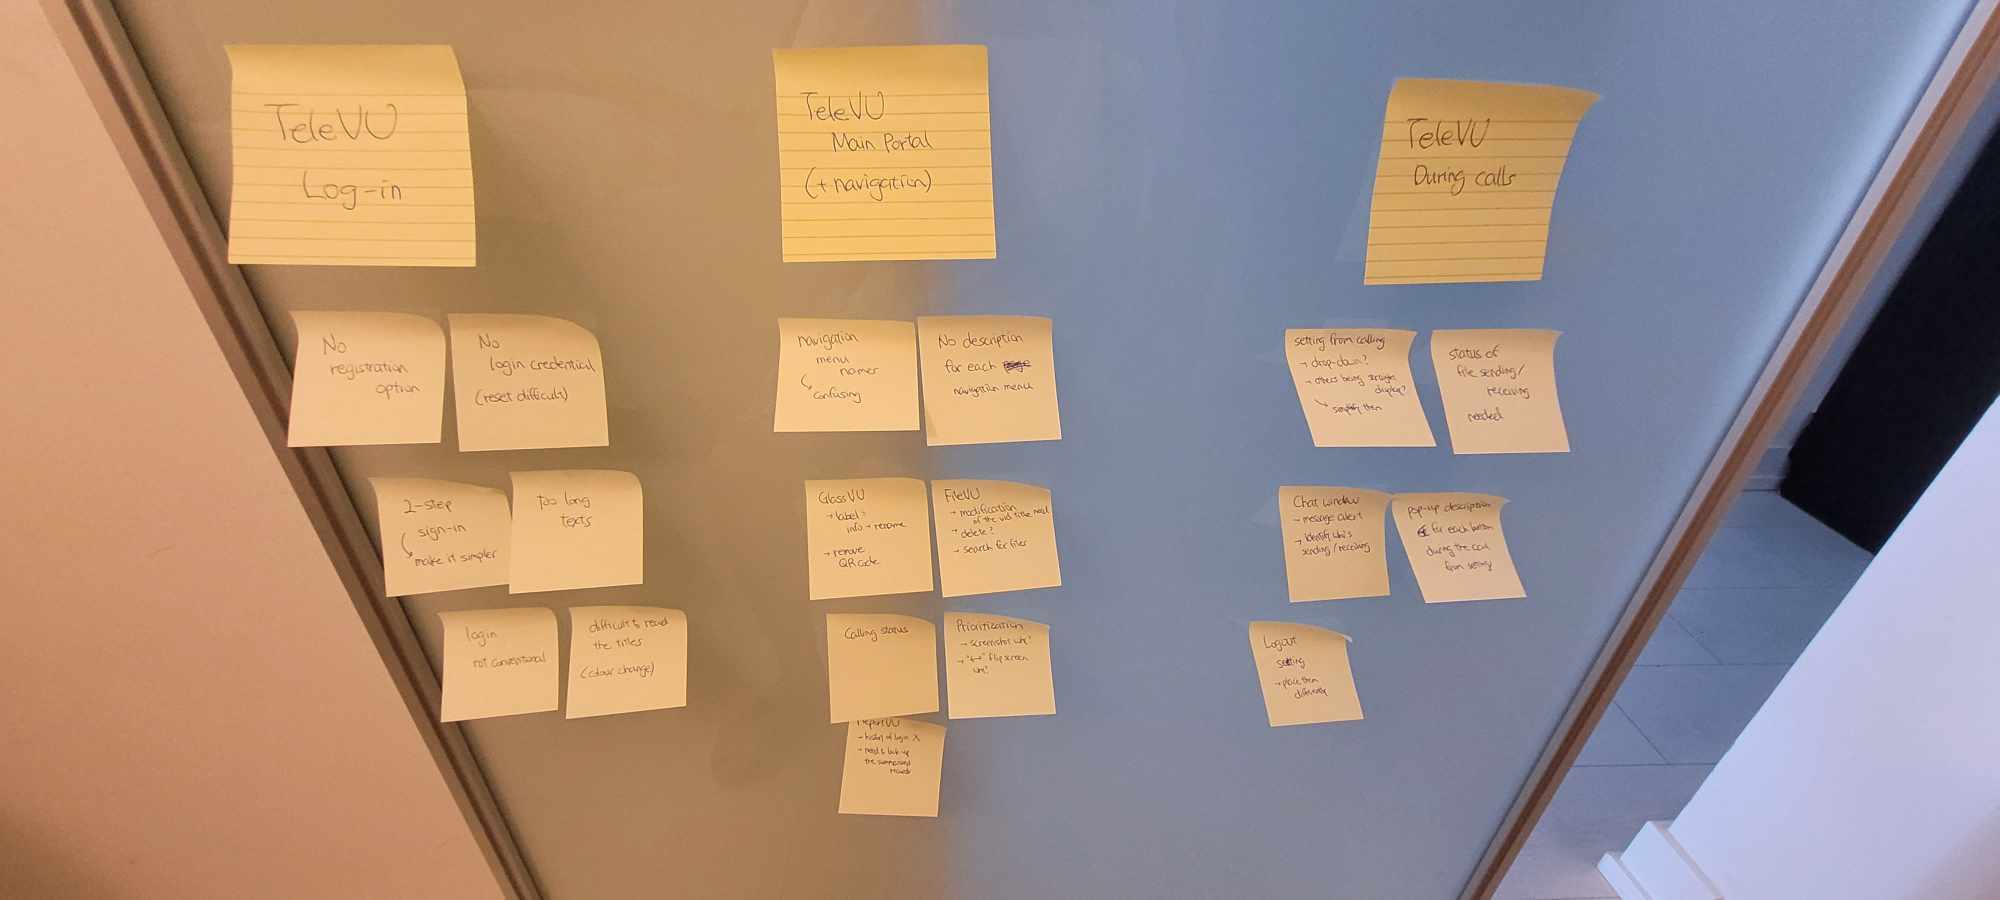 TeleVU
Log-in
No
registration
option
No
login credential
(reset difficult)
2-step
sign-in
make it simpler
too long
texts
login
not conventional
difficult to read
the titles
(colour change)
TeleVU
Main Portal
(+ navigation)
navigation
menu
names
confusing
No description
for each
navigation menu
GlassVU
→ label?
info → rename
→ remove
QR code
FileVU
→ modification
of the vid title need
→ delete?
→ search for files
Calling status
Prioritization
→ screenshot why?
→ "↔" flip screen
why?
→ history of login X
→ need to look up
the summarized
records
TeleVU
During calls
setting from calling
→ drop-down?
→ others being straight
display?
simplify them
status of
file sending/
receiving
needed
Chat window
→ message alert
→ identify who's
sending/receiving
pop-up description
for each button
during the call
from setting
Logout
setting
→ place them
differently